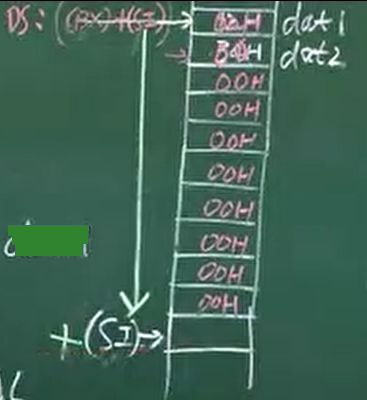 DS: ((BX)+(SI)) → 02H dat1
→ 30H dat2
00H
00H
00H
00H
00H
00H
00H
00H
+(SI)→